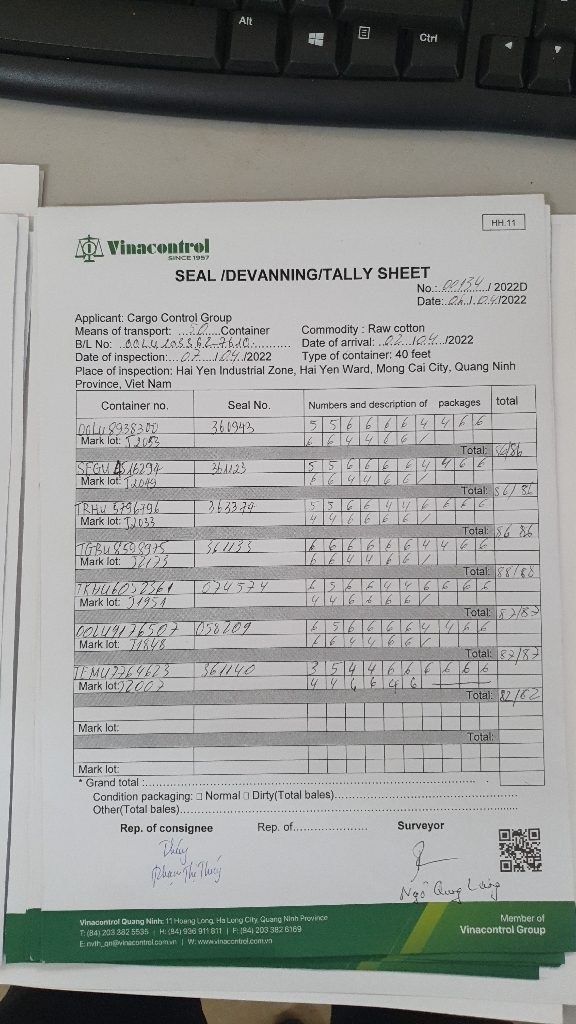 Alt
Ctrl
HH.11
Vinacontrol
SINCE 1957
SEAL /DEVANNING/TALLY SHEET
No.: 00134 / 2022D
Date: 02 / 04/2022
Applicant: Cargo Control Group
Means of transport: ...50....Container Commodity : Raw cotton
B/L No: Date of arrival: 02 /04 /2022
Date of inspection: 02 /04 /2022 Type of container: 40 feet
Place of inspection: Hai Yen Industrial Zone, Hai Yen Ward, Mong Cai City, Quang Ninh
Province, Viet Nam
Container no. Seal No. Numbers and description of packages total
OOLU8938300 360943 5 5 6 6 6 6 4 4 6 6
Mark lot: J2053 6 6 4 4 6 6 /
Total: 86/86
SEGU 361123 5 5 6 6 6 6 4 4 6 6
Mark lot: J2049 6 6 4 4 6 6 /
Total: 86/86
TRHU 3796796 363379 5 5 6 6 4 4 6 6 6 6
Mark lot: J2033 4 4 6 6 6 6 /
Total: 86 86
TGBU8598975 361133 6 6 6 6 6 6 4 4 6 6
Mark lot: 6 6 4 4 6 6 /
Total: 88/88
074574 6 5 6 6 4 4 6 6 6 6
Mark lot: J1951 4 4 6 6 6 6 /
Total: 87/87
OOLU9176507 058209 6 5 6 6 6 6 4 4 6 6
Mark lot: J1848 6 6 4 4 6 6 /
Total: 87/87
TEMU7764623 361140 3 5 4 4 6 6 6 6 6 6
Mark lot: J2007 4 4 6 6 6 6
Total: 82/82
Mark lot:
Total:
Mark lot:
* Grand total :
Condition packaging: □ Normal □ Dirty(Total bales)
Other(Total bales)
Rep. of consignee Rep. of Surveyor
Thúy
Phạm Thị Thúy
Ngô Quang Long
Vinacontrol Quang Ninh: 11 Hoang Long, Ha Long City, Quang Ninh Province
T: (84) 203 382 5535 | H: (84) 936 911 811 | F: (84) 203 382 6169
E: nvth_qn@vinacontrol.com.vn | W: www.vinacontrol.com.vn
Member of
Vinacontrol Group